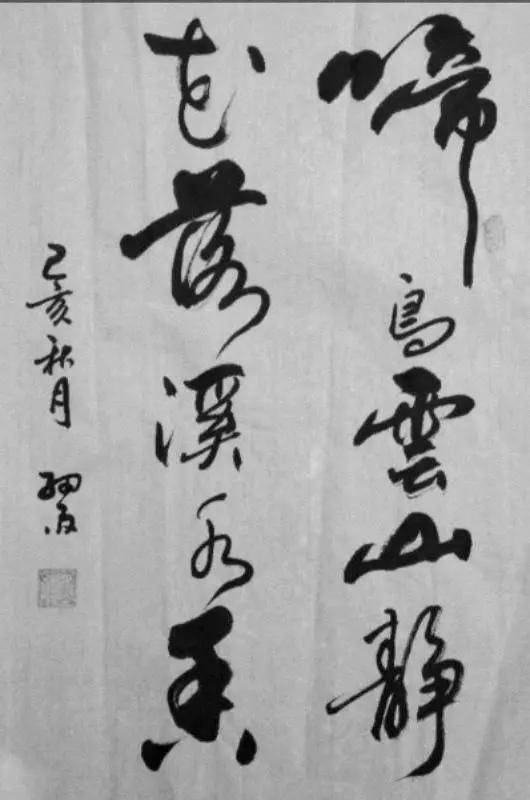 啼鳥雲山靜
花落溪水香
己亥秋月